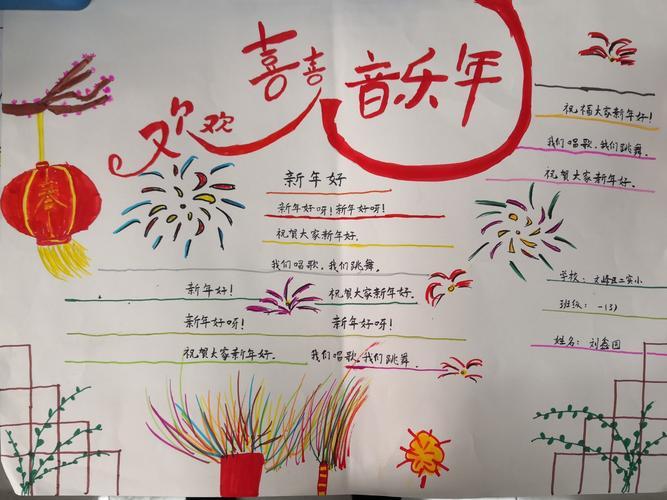 欢欢喜喜音乐年
春
新年好
新年好呀！新年好呀！
祝贺大家新年好.
我们唱歌、我们跳舞。
新年好！ 祝贺大家新年好.
新年好呀！ 新年好呀！
祝贺大家新年好. 我们唱歌、我们跳舞.
祝福大家新年好！
我们唱歌、我们跳舞.
祝贺大家新年好.
学校：文峰区二实小
班级：一(3)
姓名：刘鑫园